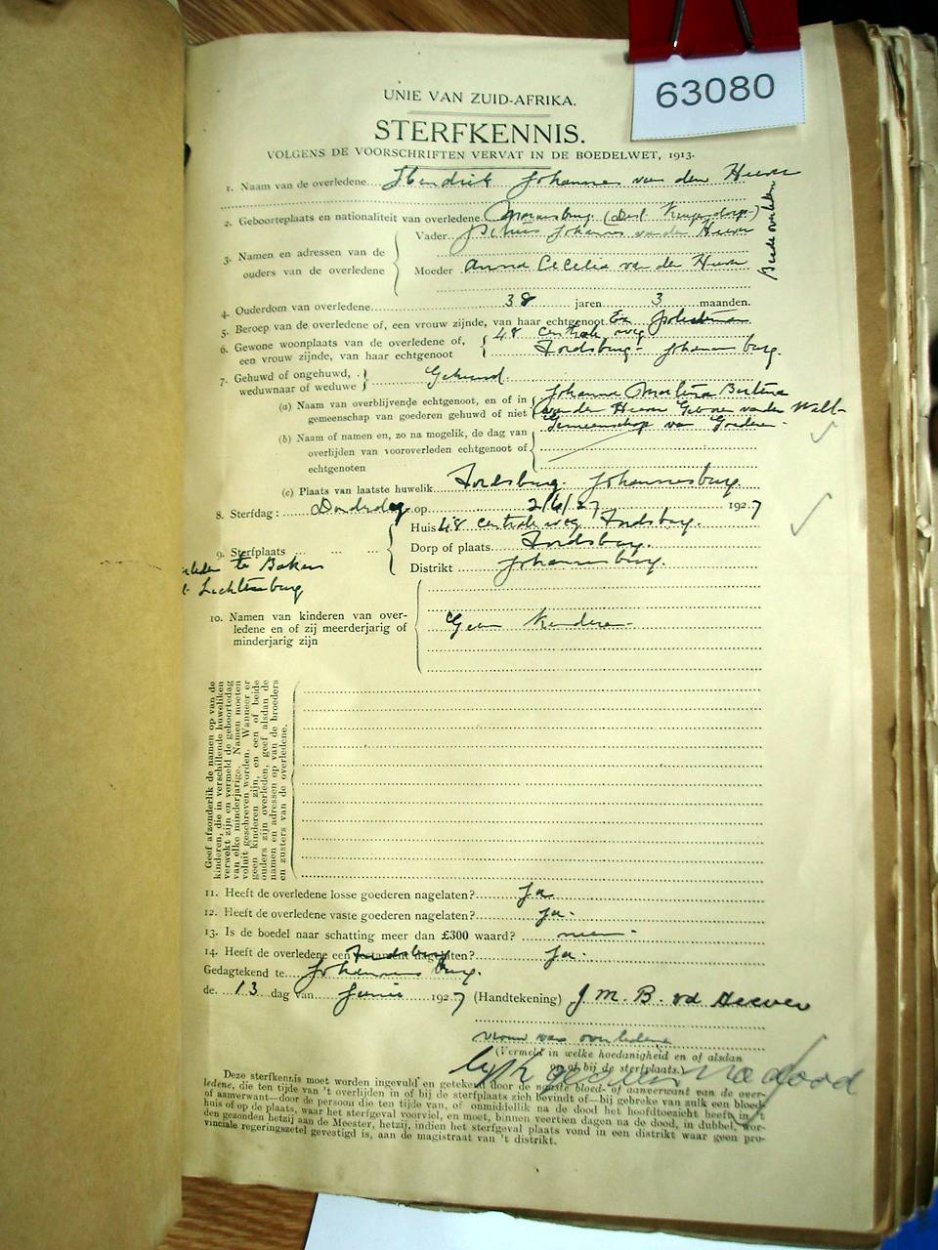 63080
UNIE VAN ZUID-AFRIKA.
STERFKENNIS.
VOLGENS DE VOORSCHRIFTEN VERVAT IN DE BOEDELWET, 1913.
1. Naam van de overledene Hendrik Johannes van den Heever
2. Geboorteplaats en nationaliteit van overledene (Dist. Krugersdorp)
Beide overleden
3. Namen en adressen van de ouders van de overledene
Vader Johannes van der Heever
Moeder Anna Cecelia van der Heever
4. Ouderdom van overledene 38 jaren 3 maanden.
5. Beroep van de overledene of, een vrouw zijnde, van haar echtgenoot
6. Gewone woonplaats van de overledene of, een vrouw zijnde, van haar echtgenoot
48 Centrale weg
Fordsburg Johannesburg.
7. Gehuwd of ongehuwd, weduwnaar of weduwe Gehuwd.
(a) Naam van overblijvende echtgenoot, en of in gemeenschap van goederen gehuwd of niet
Johanna Martina Bertina
van der Heever Geboren van der Walt
Gemeenschap van Goederen
(b) Naam of namen en, zo na mogelik, de dag van overlijden van vooroverleden echtgenoot of echtgenoten
(c) Plaats van laatste huwelik Fordsburg. Johannesburg
8. Sterfdag: Donderdag op 2/6/27 1927
9. Sterfplaats
Huis 48 Centrale weg Fordsburg.
Dorp of plaats Fordsburg.
Distrikt Johannesburg.
te Bakers
Lichtenburg
10. Namen van kinderen van overledene en of zij meerderjarig of minderjarig zijn
Geen kinderen
Geef afzonderlik de namen op van de
kinderen, die in verschillende huweliken
verwekt zijn en vermeld de geboortedag
van elke minderjarige. Namen moeten
voluit geschreven worden. Wanneer er
geen kinderen zijn, en een of beide
ouders zijn overleden, geef alsdan de
namen en adressen op van de broeders
en zusters van de overledene.
11. Heeft de overledene losse goederen nagelaten? Ja
12. Heeft de overledene vaste goederen nagelaten? Ja.
13. Is de boedel naar schatting meer dan £300 waard? neen
14. Heeft de overledene een testament nagelaten? Ja.
Fordsburg
Gedagtekend te Johannesburg.
de 13 dag van Junie 1927 (Handtekening) J. M. B. vd Heever
vrouw van overledene
(Vermeld in welke hoedanigheid en of alsdan
op of bij de sterfplaats.)
lyk gesien na dood
Deze sterfkennis moet worden ingevuld en getekend door de naaste bloed- of aanverwant van de over-
ledene, die ten tijde van 't overlijden in of bij de sterfplaats zich bevindt of—bij gebreke van zulk een bloed-
of aanverwant—door de persoon die ten tijde van, of onmiddellik na de dood het hoofdtoezicht heeft in 't
huis of op de plaats, waar het sterfgeval voorviel, en moet, binnen veertien dagen na de dood, in dubbel, wor-
den gezonden hetzij aan de Meester, hetzij, indien het sterfgeval plaats vond in een distrikt waar geen pro-
vinciale regeringszetel gevestigd is, aan de magistraat van 't distrikt.